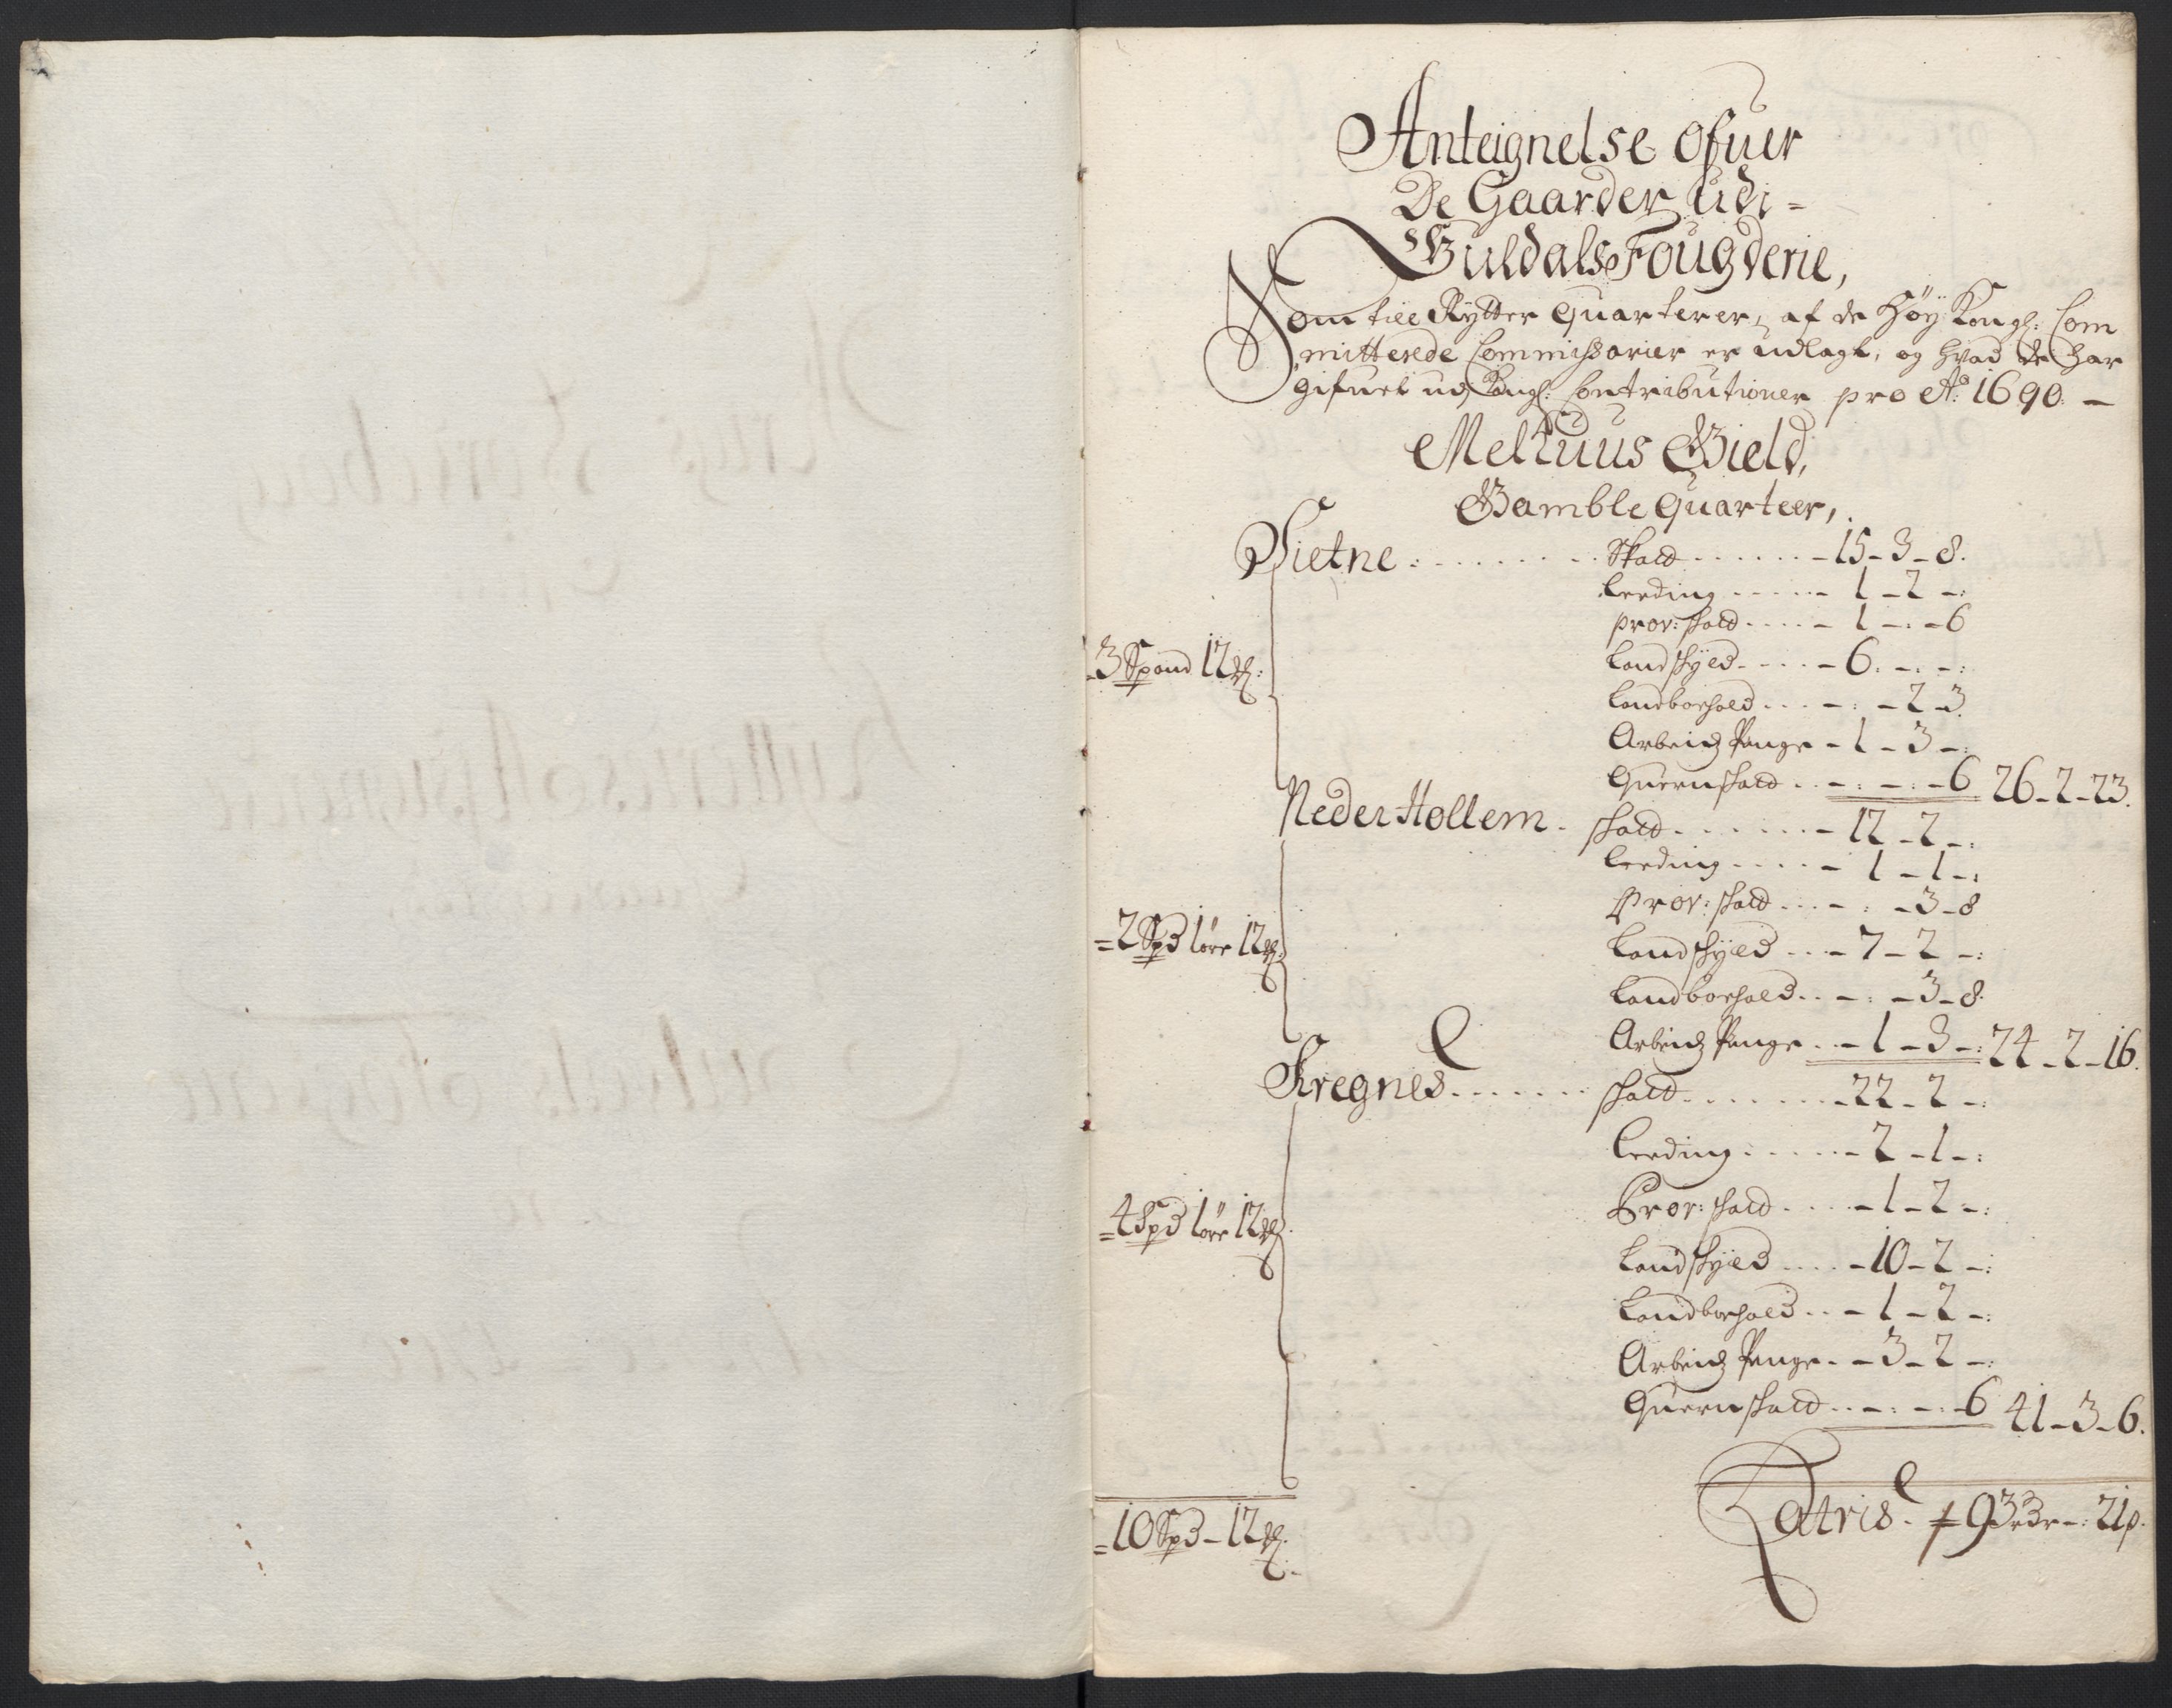 Anteignelse ofuer
De Gaarder udi =
Guldals Fougderie,
Som till Rytter Quarterer, af de Høy Kongl: Com
mitterede Commissarier er udlagt, og hvad de har
gifuet udj Kongl: Contributioner pro Aº: 1690. –
Melhuus Gield,
Gamble Quarteer,
Sietne . . . . . . . . . Skatt . . . . . . – 15 – 3 – 8.
Leeding . . . . . – 1 – 2 – :
prov: skatt . . . . – 1 – : – 6
3 Spand 12 ℳ: Landskyld . . . . – 6 : – : – :
Landboehold . . . – : – 2 – 3
Arbeidz Penge – 1 – 3 – :
Querneskatt . . – : – : – 6 26 – 2 – 23.
Neder Hollem . skatt . . . . . . . – 12 – 2 – :
Leeding . . . . . – 1 – 1 – :
Prov: skatt . . . – : – 3 – 8
= 2 Spd 1 øre 12 ℳ: Landskyld . . . – 7 – 2 – :
Landboehold . . – : – 3 – 8.
Arbeidz Penge . . – 1 – 3 – : 24 – 2 – 16.
Kregnes . . . . . . . skatt . . . . . . . . – 22 – 2 – :
Leeding . . . . . – 2 – 1 – :
Prov: skatt . . . . – 1 – 2 – :
= 4 Spd 1 øre 12 ℳ: Landskyld . . . . – 10 – 2 – :
Landboehold . . – 1 – 2 – :
Arbeidz Penge . – 3 – 2 – :
Querneskatt . . – : – : – 6 41 – 3 – 6.
= 10 Spd – 12 ℳ: Latris . 93 – : 21 p.